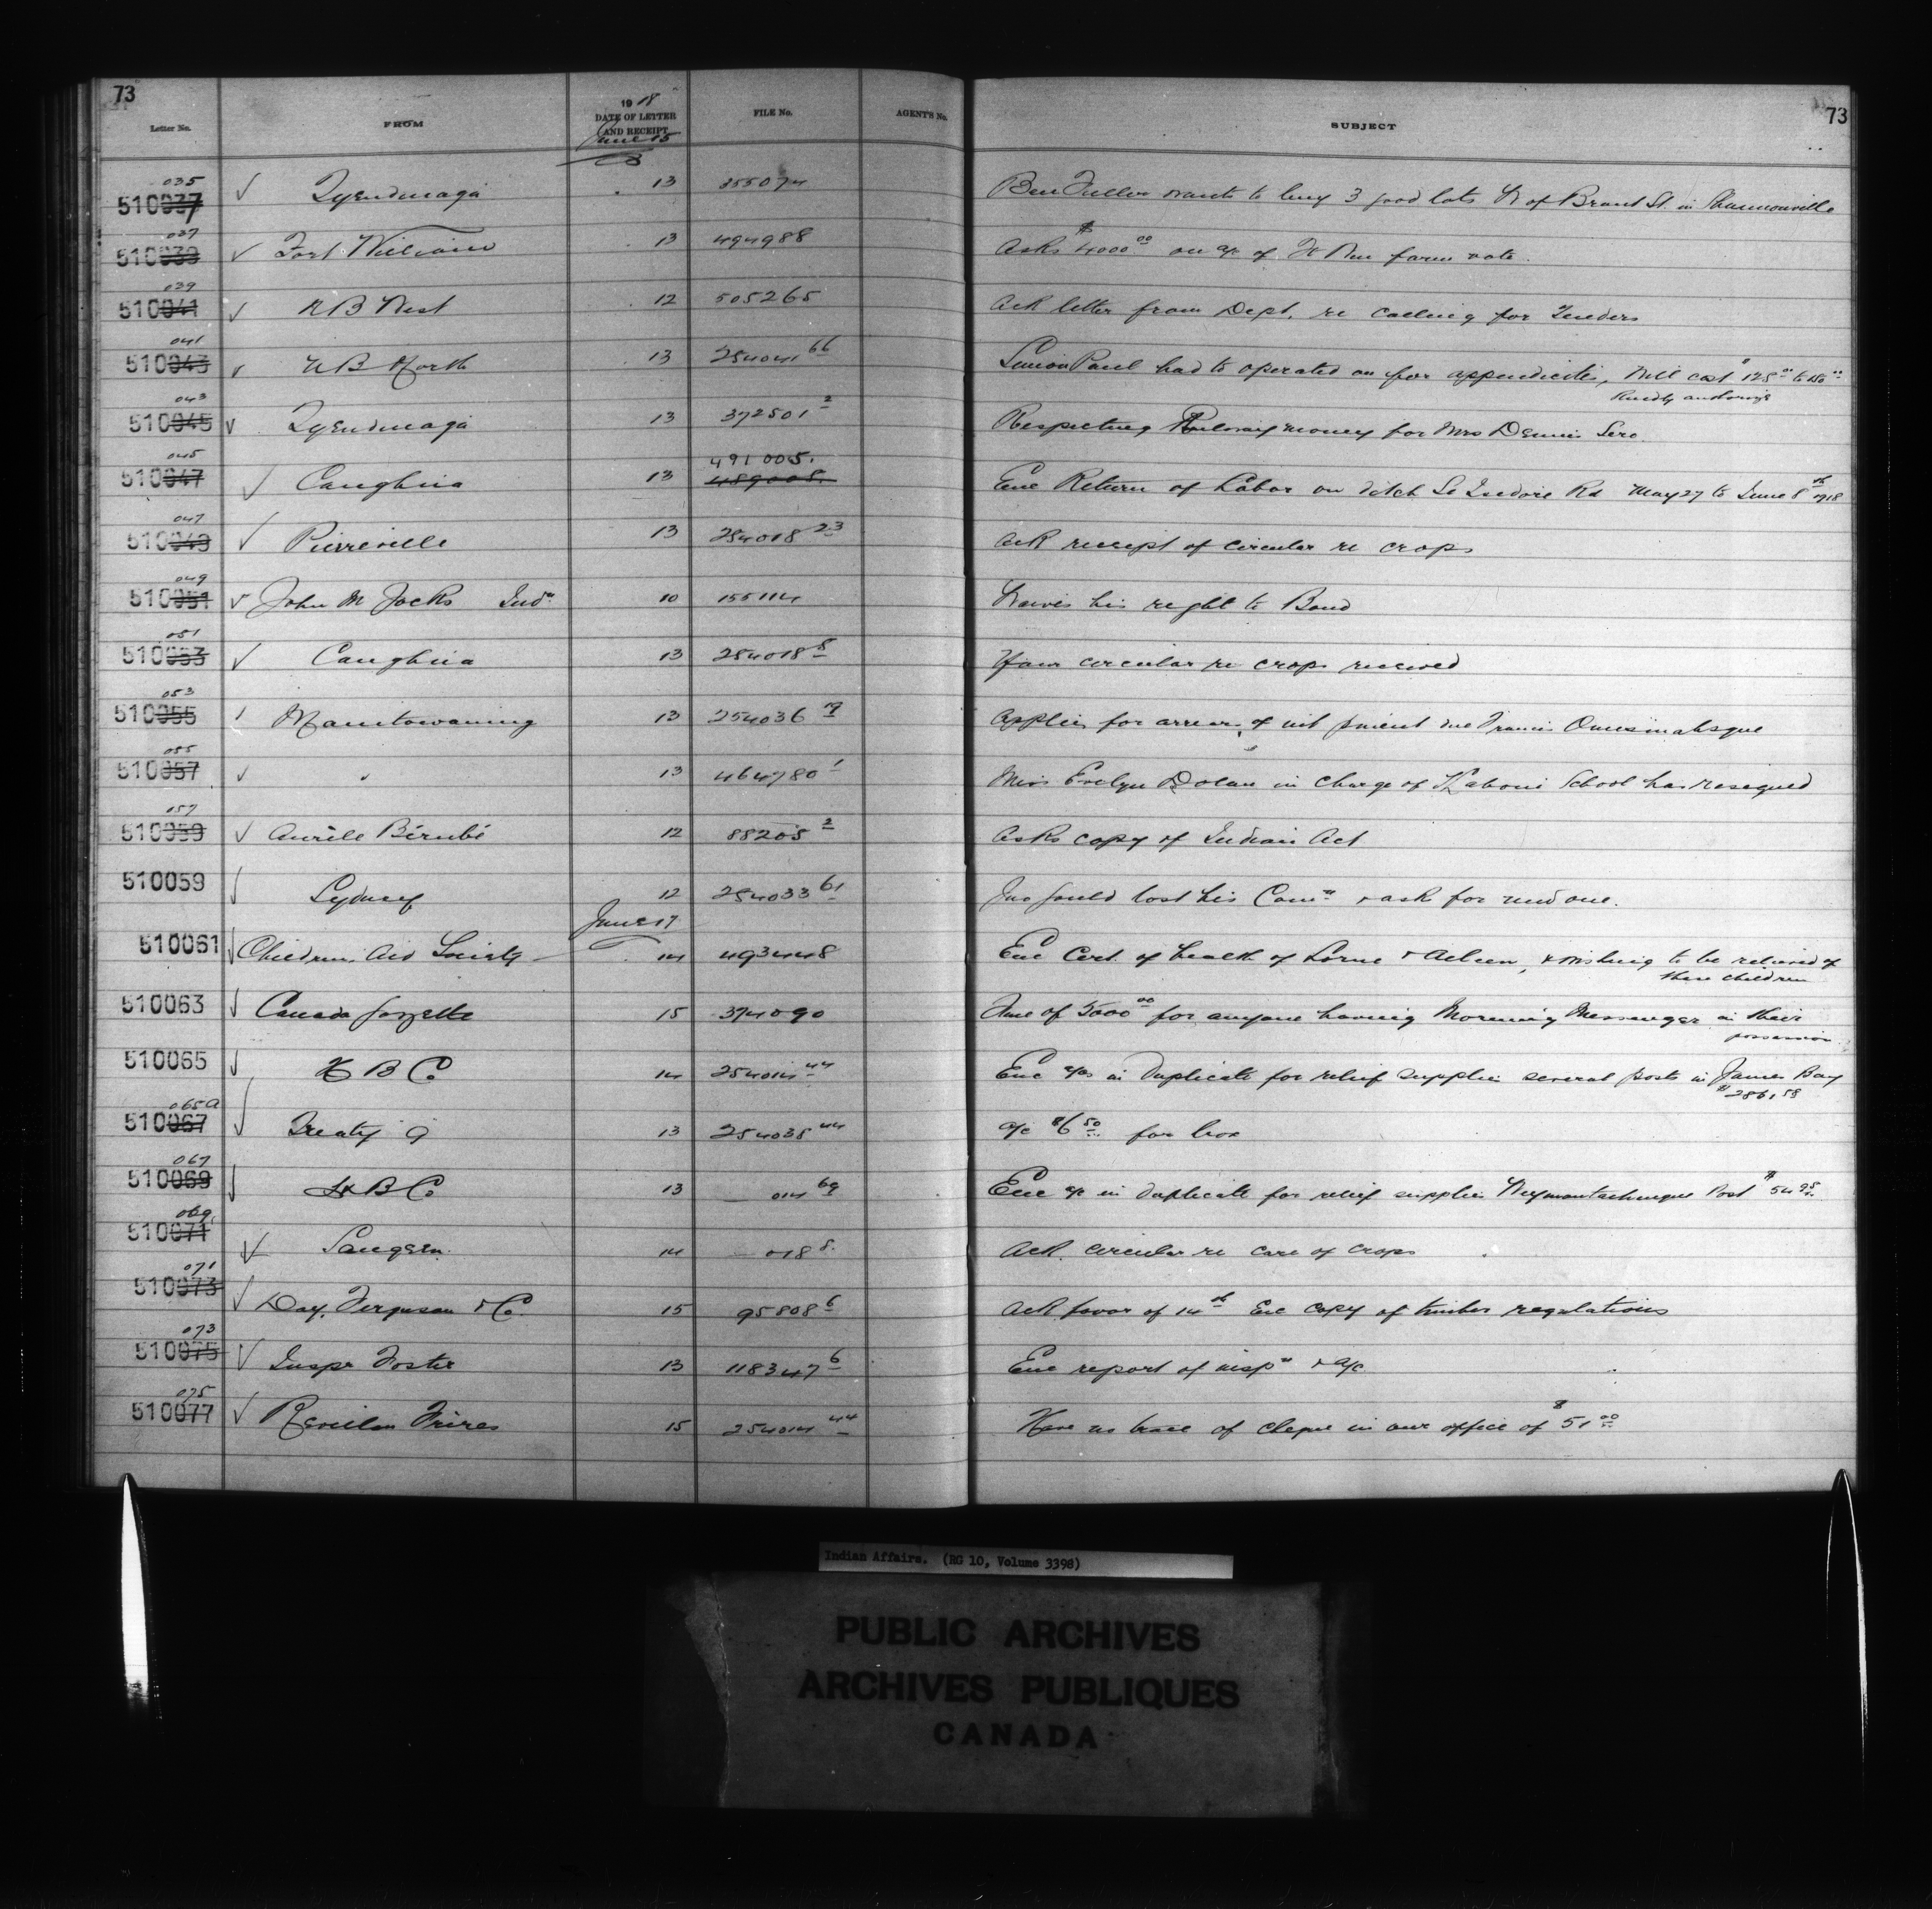 73
73
Letter No. FROM 1918 DATE OF LETTER AND RECEIPT FILE No. AGENT'S No. SUBJECT
June 15
510037 035 ✓ Tyendinaga 13 355074 Ben Fuller wants to buy 3 good lots W of Brant St. in Shannonville
510039 037 ✓ Fort William 13 494988 Asks $4000.00 on a/c of Ft Wm farm vote.
510041 039 ✓ N B West 12 505265 Ack letter from Dept. re calling for Tenders
510043 041 ✓ N B North 13 254041 66 Simon Paul had to operated on for appendicitis, Will cost $125.00 to 150.00
Kindly authorize
510045 043 ✓ Tyendinaga 13 372501 2 Respecting money for Mrs Dennis Sero.
491005.
510047 045 ✓ Caughna 13 489005. Enc Return of Labor on ditch St Isidore Rd May 27 to June 8th 1918
510049 047 ✓ Pierreville 13 254018 23 Ack receipt of circular re crops
510051 049 ✓ John M Jocks Indn 10 155114 Waives his right to Band
510053 051 ✓ Caughna 13 254018 8 Your circular re crops received
510055 053 Manitowaning 13 254036 Applies for arrears of int pment due Francis
510057 055 ✓ " 13 464780 1 Miss Evelyn Dolan in charge of Kaboni School has resigned
510059 057 ✓ Aurèle Bérubé 12 88205 2 Asks copy of Indian Act
510059 ✓ Sydney 12 254033 61 Jno Gould lost his Comn & ask for new one.
June 17
510061 ✓ Childrens Aid Society 14 493448 Enc Cert. of health of Lorne & Aileen, & wishing to be relieved of
these children
510063 ✓ Canada Gazette 15 374090 Fine of 5000.00 for anyone having Morning Messenger in their
possession.
510065 ✓ H B Co 14 254014 44 Enc a/cs in duplicate for relief supplies several posts in James Bay
$2861.59
510067 065a ✓ Treaty 9 13 254035 44 a/c $6.50 for box
510069 067 ✓ H B Co 13 — 014 69 Enc a/c in duplicate for relief supplies Weymontachingue Post $54.95
510071 069 ✓ Saugeen. 14 — 018 8. Ack. circular re care of crops
510073 071 ✓ Day, Ferguson & Co. 15 95808 6 Ack favor of 14th Enc copy of timber regulations
510075 073 ✓ Inspr Foster 13 118347 6 Enc report of inspn & a/c
510077 075 ✓ Revillon Frères 15 254014 44 Have no trace of cheque in our office of $51.00
Indian Affairs. (RG 10, Volume 3398)
PUBLIC ARCHIVES
ARCHIVES PUBLIQUES
CANADA